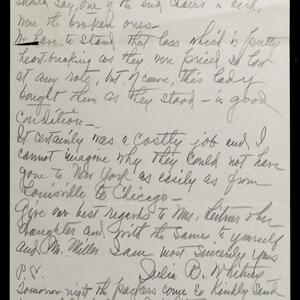 should say, one of the end chairs & desk
were the broken ones—
We have to stand that loss which is pretty
heart-breaking as they were priced so low
at any rate, but of course, this lady
bought them as they stood — in good
condition—
It certainly was a costly job and I
cannot imagine why they could not have
gone to New York as easily as from
Louisville to Chicago—
Give our best regards to Mrs.
daughter and with the same to yourself
and Mr. Miller I am most sincerely yours
Julia B. Whiting
P.S.
Tomorrow night the packers come so kindly send